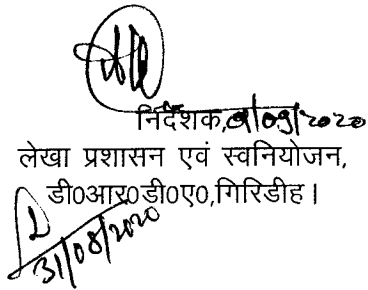 निर्देशक, 01/09/2020
लेखा प्रशासन एवं स्वनियोजन,
डी0आर0डी0ए0,गिरिडीह।
31/08/2020